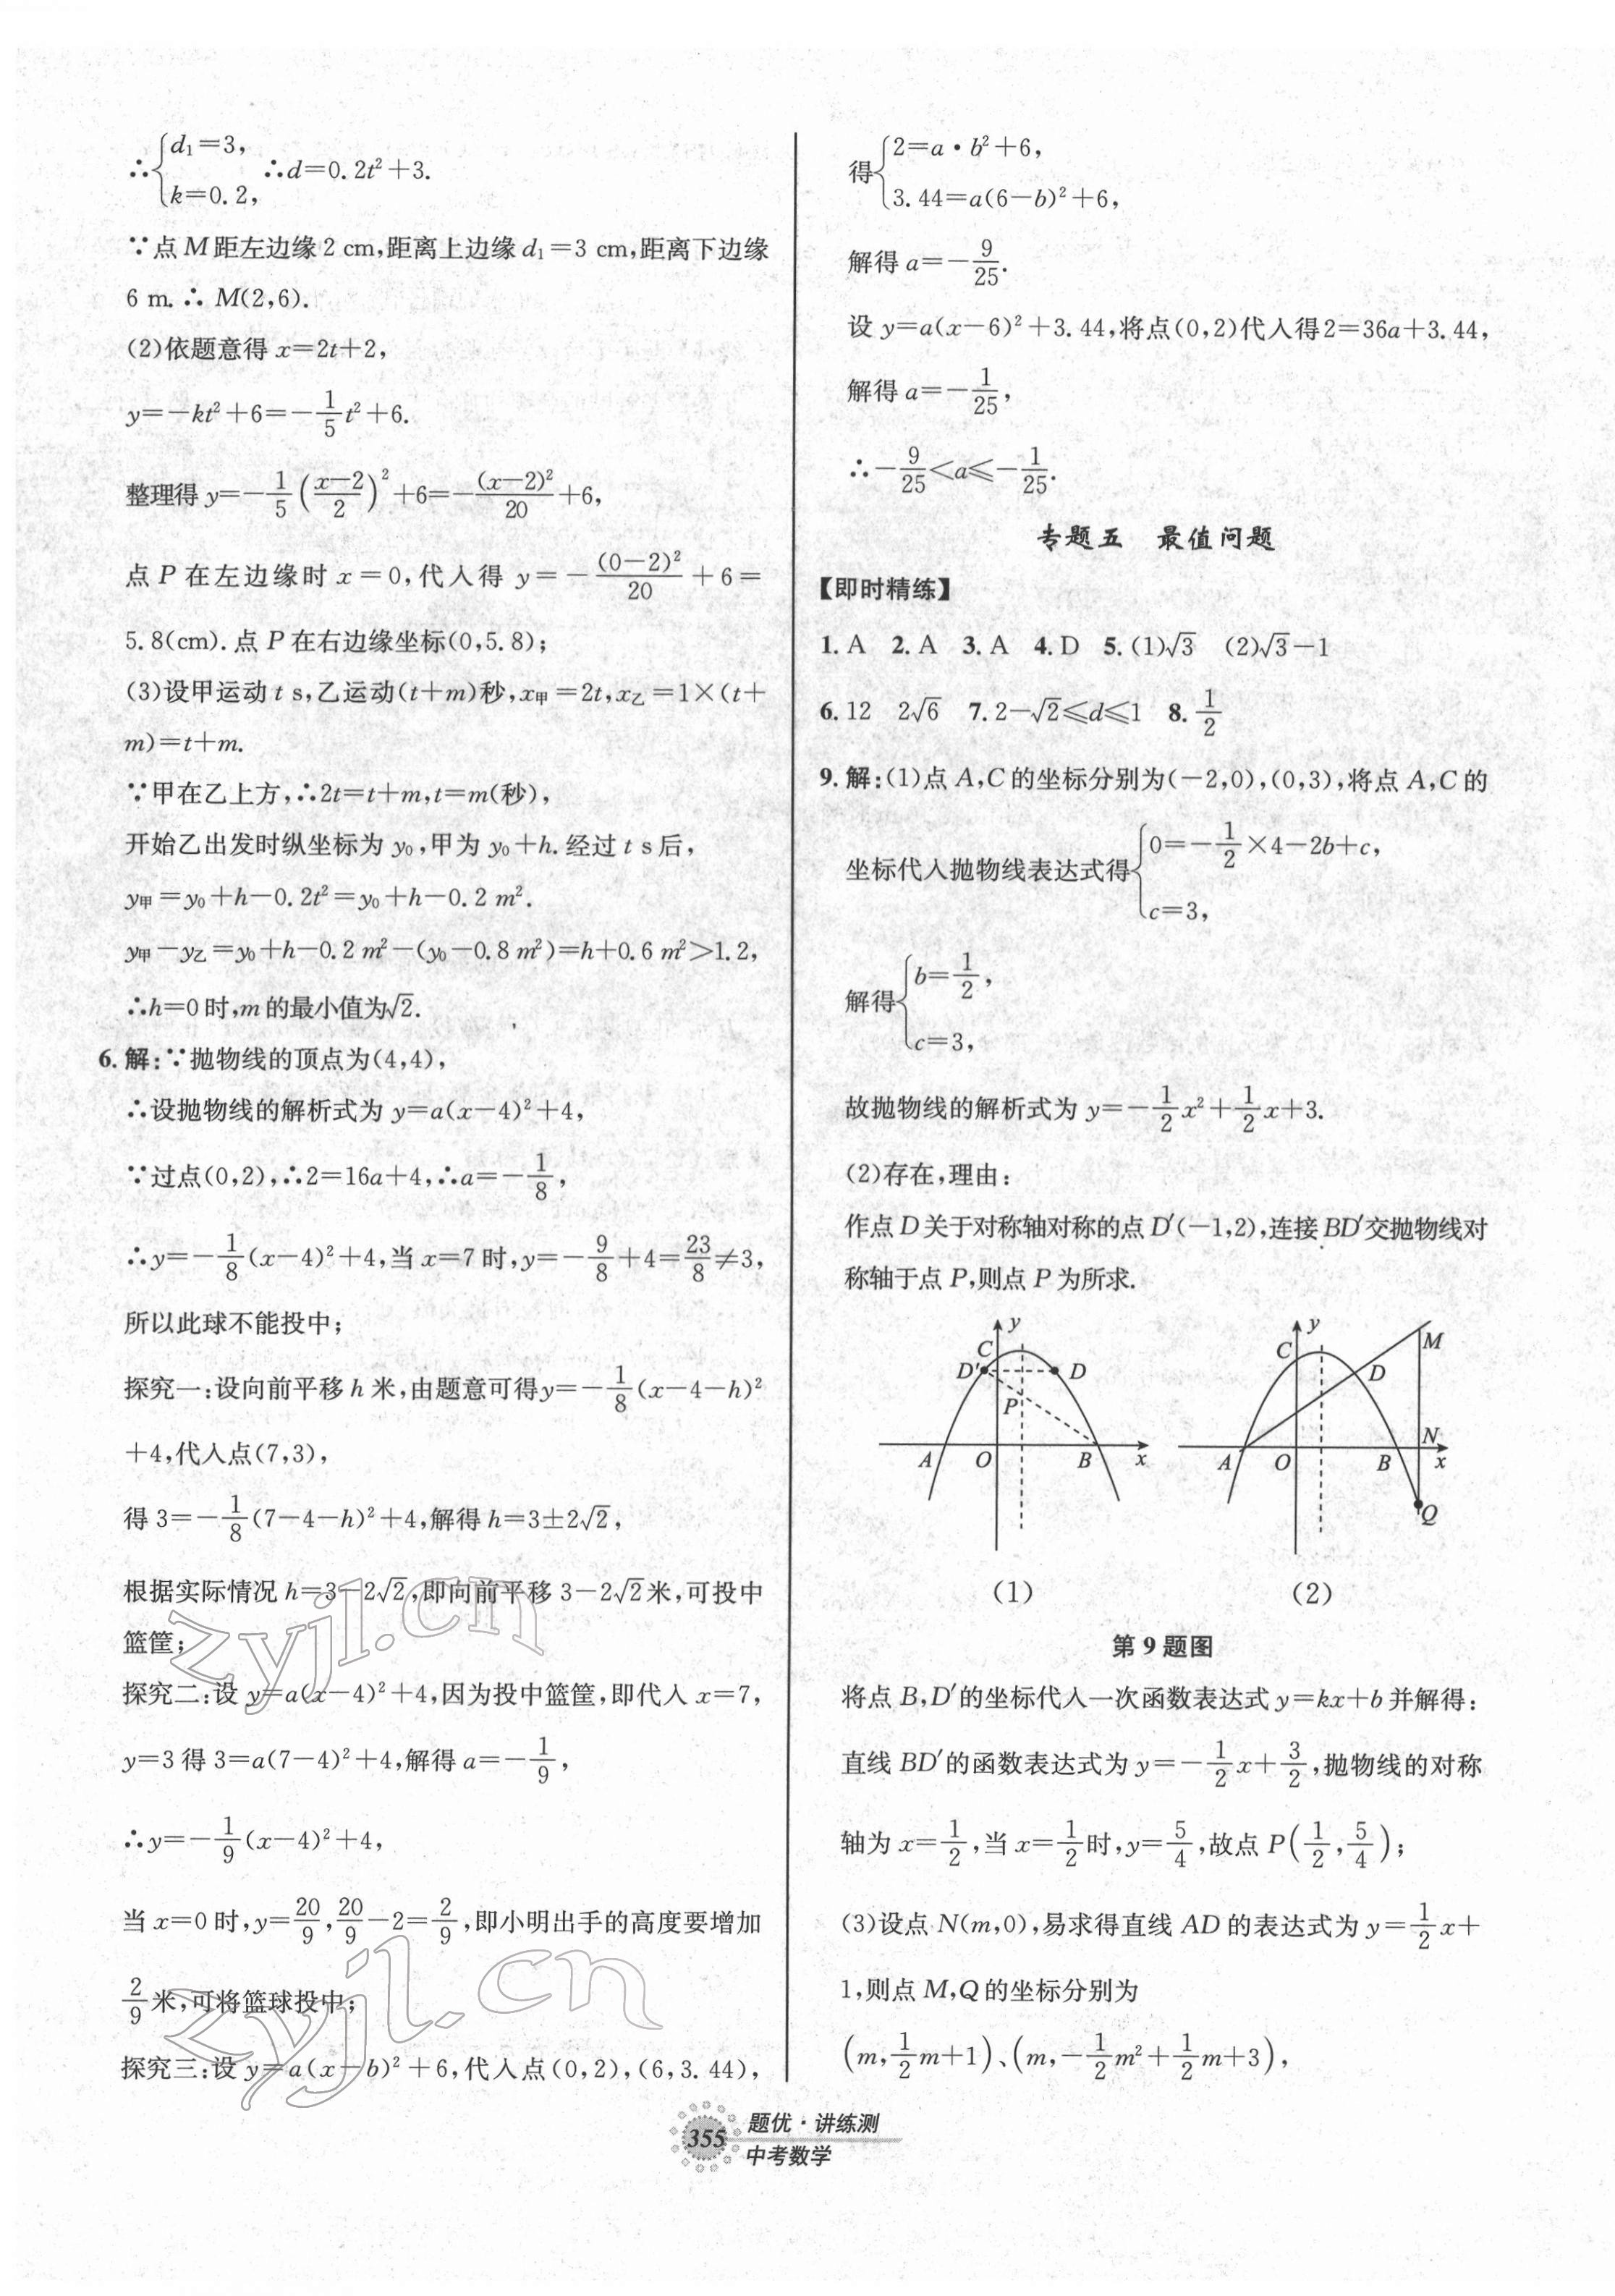 ∴{d₁=3, k=0.2, ∴d=0.2t²+3.
∵点M距左边缘2 cm,距离上边缘d₁=3 cm,距离下边缘
6 m.∴ M(2,6).
(2)依题意得x=2t+2,
y=-kt²+6=-1/5t²+6.
整理得y=-1/5((x-2)/2)²+6=-(x-2)²/20+6,
点P在左边缘时x=0,代入得y=-(0-2)²/20+6=
5.8(cm).点P在右边缘坐标(0,5.8);
(3)设甲运动t s,乙运动(t+m)秒,x甲=2t,x乙=1×(t+
m)=t+m.
∵甲在乙上方,∴2t=t+m,t=m(秒),
开始乙出发时纵坐标为y₀,甲为y₀+h.经过t s后,
y甲=y₀+h-0.2t²=y₀+h-0.2 m².
y甲-y乙=y₀+h-0.2 m²-(y₀-0.8 m²)=h+0.6 m²>1.2,
∴h=0时,m的最小值为√2.
6.解:∵抛物线的顶点为(4,4),
∴设抛物线的解析式为y=a(x-4)²+4,
∵过点(0,2),∴2=16a+4,∴a=-1/8,
∴y=-1/8(x-4)²+4,当x=7时,y=-9/8+4=23/8≠3,
所以此球不能投中;
探究一:设向前平移h米,由题意可得y=-1/8(x-4-h)²
+4,代入点(7,3),
得3=-1/8(7-4-h)²+4,解得h=3±2√2,
根据实际情况h=3-2√2,即向前平移3-2√2米,可投中
篮筐;
探究二:设y=a(x-4)²+4,因为投中篮筐,即代入x=7,
y=3得3=a(7-4)²+4,解得a=-1/9,
∴y=-1/9(x-4)²+4,
当x=0时,y=20/9,20/9-2=2/9,即小明出手的高度要增加
2/9米,可将篮球投中;
探究三:设y=a(x-b)²+6,代入点(0,2),(6,3.44),
得{2=a·b²+6, 3.44=a(6-b)²+6,
解得a=-9/25.
设y=a(x-6)²+3.44,将点(0,2)代入得2=36a+3.44,
解得a=-1/25,
∴-9/25<a≤-1/25.
专题五 最值问题
【即时精练】
1.A 2.A 3.A 4.D 5.(1)√3 (2)√3-1
6.12 2√6 7.2-√2≤d≤1 8.1/2
9.解:(1)点A,C的坐标分别为(-2,0),(0,3),将点A,C的
坐标代入抛物线表达式得{0=-1/2×4-2b+c, c=3,
解得{b=1/2, c=3,
故抛物线的解析式为y=-1/2x²+1/2x+3.
(2)存在,理由:
作点D关于对称轴对称的点D′(-1,2),连接BD′交抛物线对
称轴于点P,则点P为所求.
y C D′ D P A O B x
y C M D N A O B x Q
(1) (2)
第9题图
将点B,D′的坐标代入一次函数表达式y=kx+b并解得:
直线BD′的函数表达式为y=-1/2x+3/2,抛物线的对称
轴为x=1/2,当x=1/2时,y=5/4,故点P(1/2,5/4);
(3)设点N(m,0),易求得直线AD的表达式为y=1/2x+
1,则点M,Q的坐标分别为
(m,1/2m+1)、(m,-1/2m²+1/2m+3),
zyjl.cn
zyjl.cn
355 题优·讲练测
中考数学